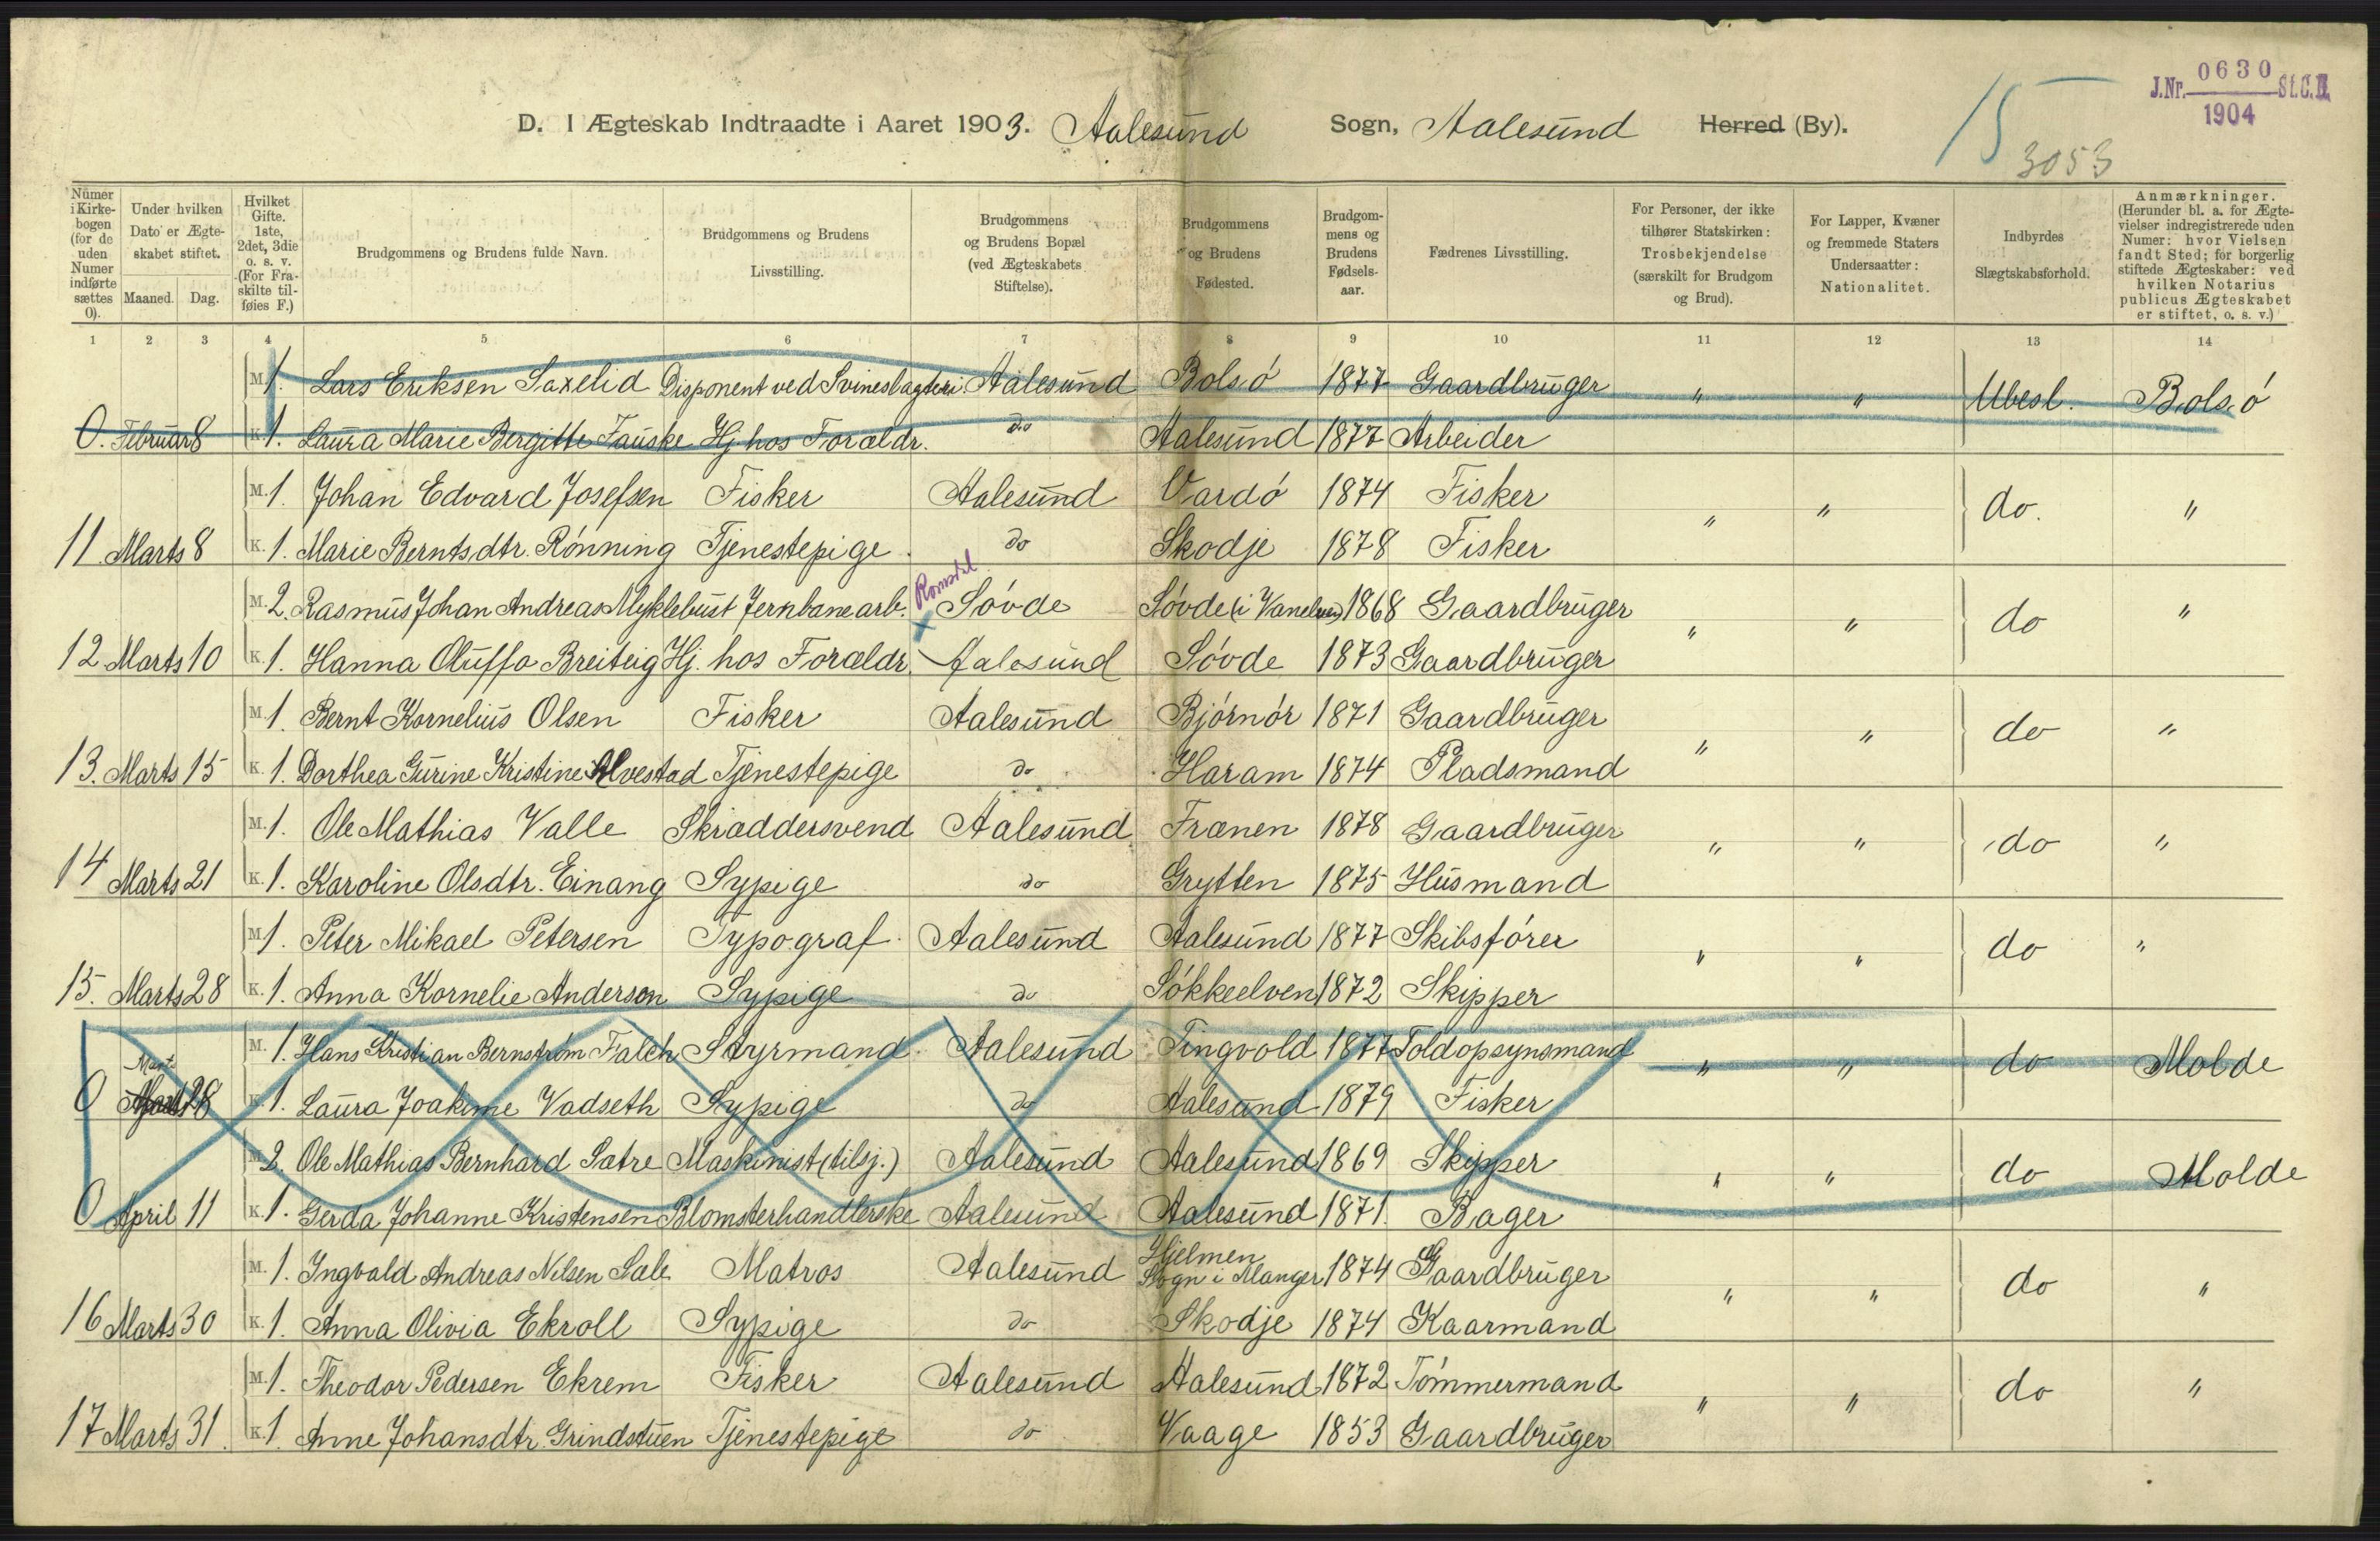 J.Nr. 0630 St.C.B.
1904
D. I Ægteskab Indtraadte i Aaret 1903. Aalesund Sogn, Aalesund Herred (By).
15
3053
Numer i Kirkebogen (for de uden Numer indførte sættes 0).
Under hvilken Dato er Ægteskabet stiftet.
Maaned. Dag.
Hvilket Gifte. 1ste, 2det, 3die o. s. v. (For Fraskilte tilføies F.)
Brudgommens og Brudens fulde Navn.
Brudgommens og Brudens Livsstilling.
Brudgommens og Brudens Bopæl (ved Ægteskabets Stiftelse).
Brudgommens og Brudens Fødested.
Brudgommens og Brudens Fødselsaar.
Fædrenes Livsstilling.
For Personer, der ikke tilhører Statskirken: Trosbekjendelse (særskilt for Brudgom og Brud).
For Lapper, Kvæner og fremmede Staters Undersaatter: Nationalitet.
Indbyrdes Slægtskabsforhold.
Anmærkninger. (Herunder bl. a. for Ægtevielser indregistrerede uden Numer: hvor Vielsen fandt Sted; for borgerlig stiftede Ægteskaber: ved hvilken Notarius publicus Ægteskabet er stiftet, o. s. v.)
1 2 3 4 5 6 7 8 9 10 11 12 13 14
M. 1. Lars Eriksen Saxelid Disponent ved Svineslagteri. Aalesund Bolsó 1877 Gaardbruger " " Ubesl. Bolsó
0. Februar 8 K. 1. Laura Marie Bergitte Fauske Hj hos Forældr. do Aalesund 1877 Arbeider
M. 1. Johan Edvard Josefsen Fisker Aalesund Vardó 1874 Fisker " " do. "
11. Marts 8 K. 1. Marie Berntsdtr. Rónning Tjenestepige. do Skodje 1878 Fisker
Romsdal
M. 2. Rasmus Johan Andreas Myklebust Jernbanearb. x Sóvde Sóvde (i Vanelven) 1868 Gaardbruger " " do "
12 Marts 10 K. 1. Hanna Oluffa Breiteig Hj. hos Forældr. Aalesund Sóvde 1873 Gaardbruger
M. 1. Bernt Kornelius Olsen Fisker Aalesund Bjórnór 1871 Gaardbruger " " do "
13. Marts 15 K. 1. Dorthea Gurine Kristine Alvestad Tjenestepige do Haram 1874 Pladsmand
M. 1. Ole Mathias Valle Skræddersvend Aalesund Frænen 1878 Gaardbruger " " do "
14 Marts 21 K. 1. Karoline Olsdtr. Einang Sypige do Grytten 1875 Husmand
M. 1. Peter Mikael Petersen Typograf. Aalesund Aalesund 1877 Skibsfórer " " do "
15. Marts 28 K. 1. Anna Kornelie Anderson Sypige do Sókkelven 1872 Skipper
M. 1. Hans Kristian Bernstróm Falch Styrmand. Aalesund Tingvold 1877 Toldopsynsmand " " do Molde
Mart.
0 28 K. 1. Laura Joakime Vadseth Sypige do Aalesund 1879 Fisker
M. 2. Ole Mathias Bernhard Sætre Maskinist (tilsj.) Aalesund Aalesund 1869 Skipper " " do Molde
0 April 11 K. 1. Gerda Johanne Kristensen Blomsterhandlerske Aalesund Aalesund 1871. Bager
M. 1. Ingvald Andreas Nilsen Sæle Matros Aalesund Hjelmen Sogn i Manger 1874 Gaardbruger " " do "
16 Marts 30 K. 1. Anna Olivia Ekroll Sypige do Skodje 1874 Kaarmand
M. 1. Theodor Pedersen Ekrem Fisker Aalesund Aalesund 1872 Tómmermand " " do "
17 Marts 31. K. 1 Anne Johansdtr. Grindstuen Tjenestepige do Vaage 1853 Gaardbruger